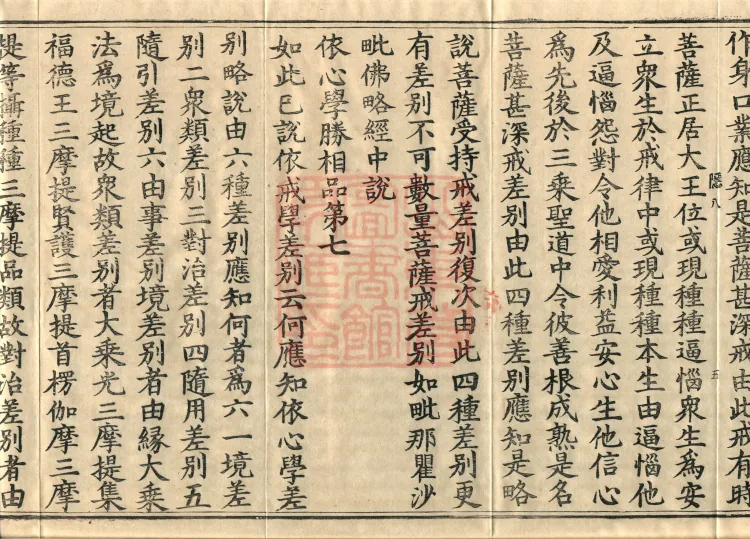 作身口業應知是菩薩甚深戒由此戒有時
隱八
五
菩薩正居大王位或現種種逼惱衆生爲安
立衆生於戒律中或現種種本生由逼惱他
及逼惱怨對令他相愛利益安心生他信心
爲先後於三乘聖道中令彼善根成熟是名
菩薩甚深戒差別由此四種差別應知是略
說菩薩受持戒差別復次由此四種差別更
有差別不可數量菩薩戒差別如毗那瞿沙
毗佛略經中說
依心學勝相品第七
如此已說依戒學差別云何應知依心學差
別略說由六種差別應知何者爲六一境差
別二衆類差別三對治差別四隨用差別五
隨引差別六由事差別境差別者由緣大乘
法爲境起故衆類差別者大乘光三摩提集
福德王三摩提賢護三摩提首楞伽摩三摩
提等攝種種三摩提品類故對治差別者由